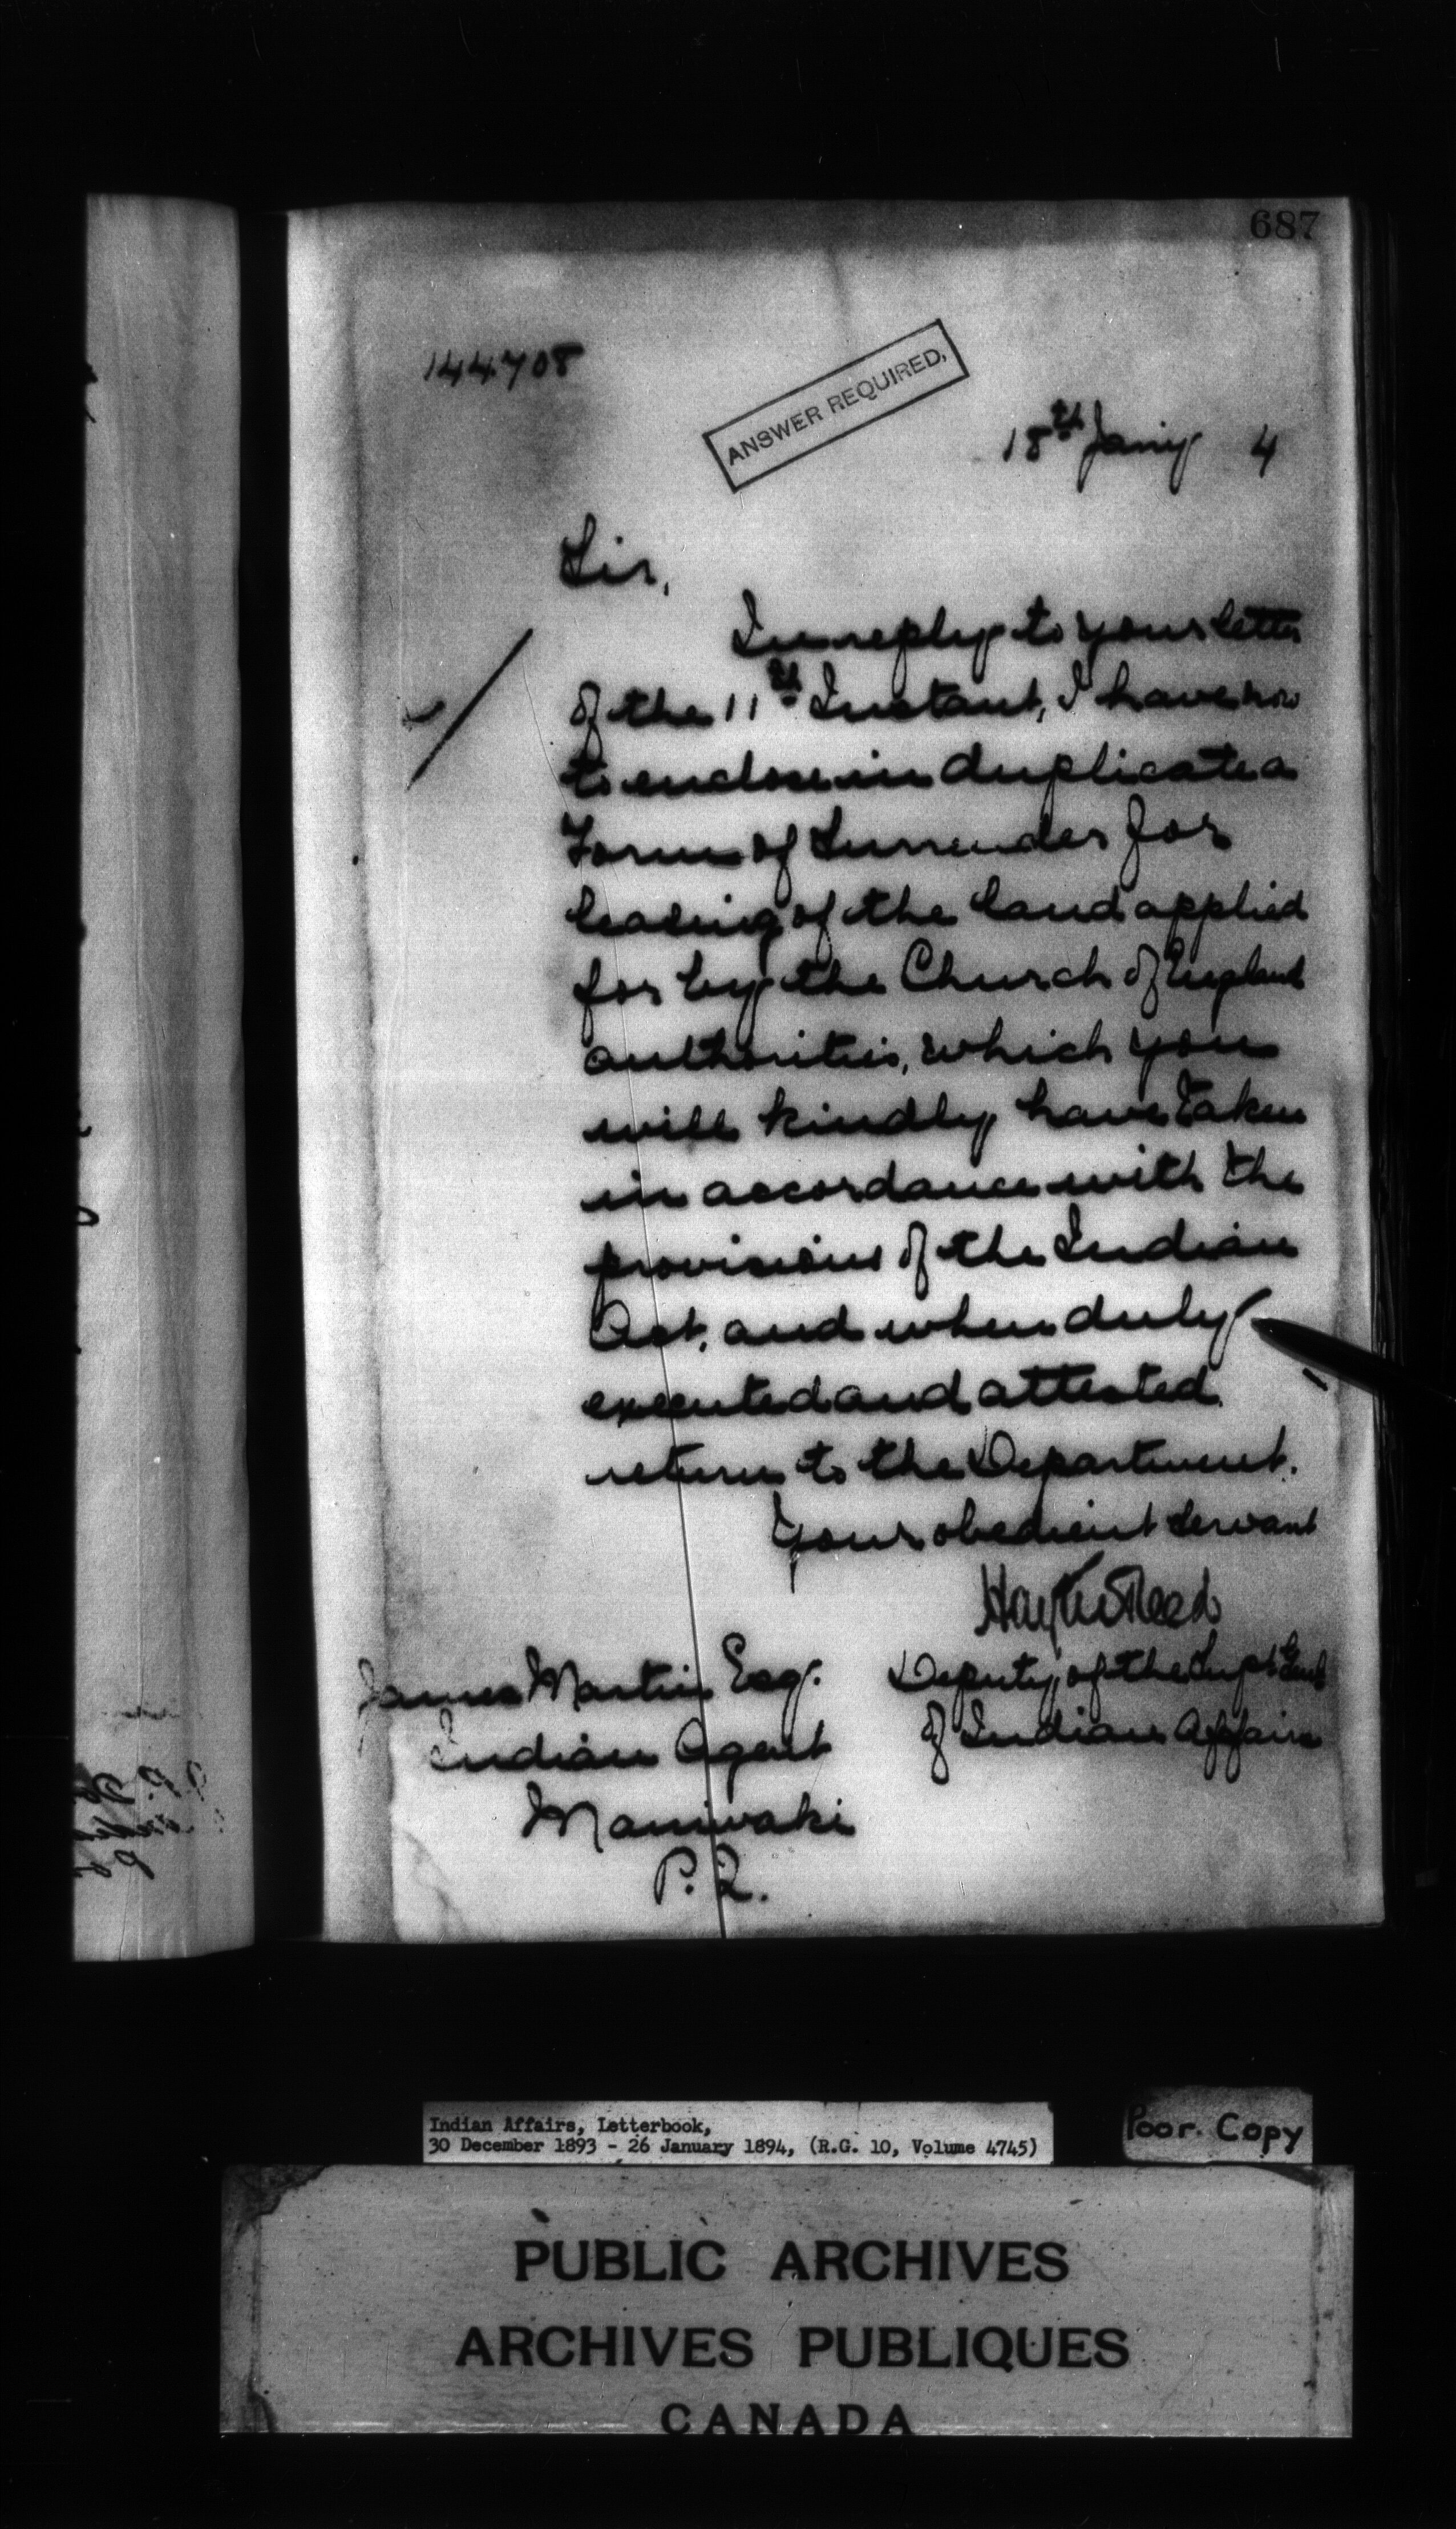 687
144708
ANSWER REQUIRED.
18th Jany 4
Sir,
In reply to your letter
of the 11th Instant, I have now
to enclose in duplicate a
Form of Surrender for
leasing of the land applied
for by the Church of England
authorities, which you
will kindly have taken
in accordance with the
provisions of the Indian
Act, and when duly
executed and attested
return to the Department.
Your obedient servant
Hayter Reed
Deputy of the Supt. Genl
of Indian Affairs
James Martin Esq.
Indian Agent
Maniwaki
P.Q.
Indian Affairs, Letterbook,
30 December 1893 - 26 January 1894, (R.G. 10, Volume 4745)
Poor Copy
PUBLIC ARCHIVES
ARCHIVES PUBLIQUES
CANADA